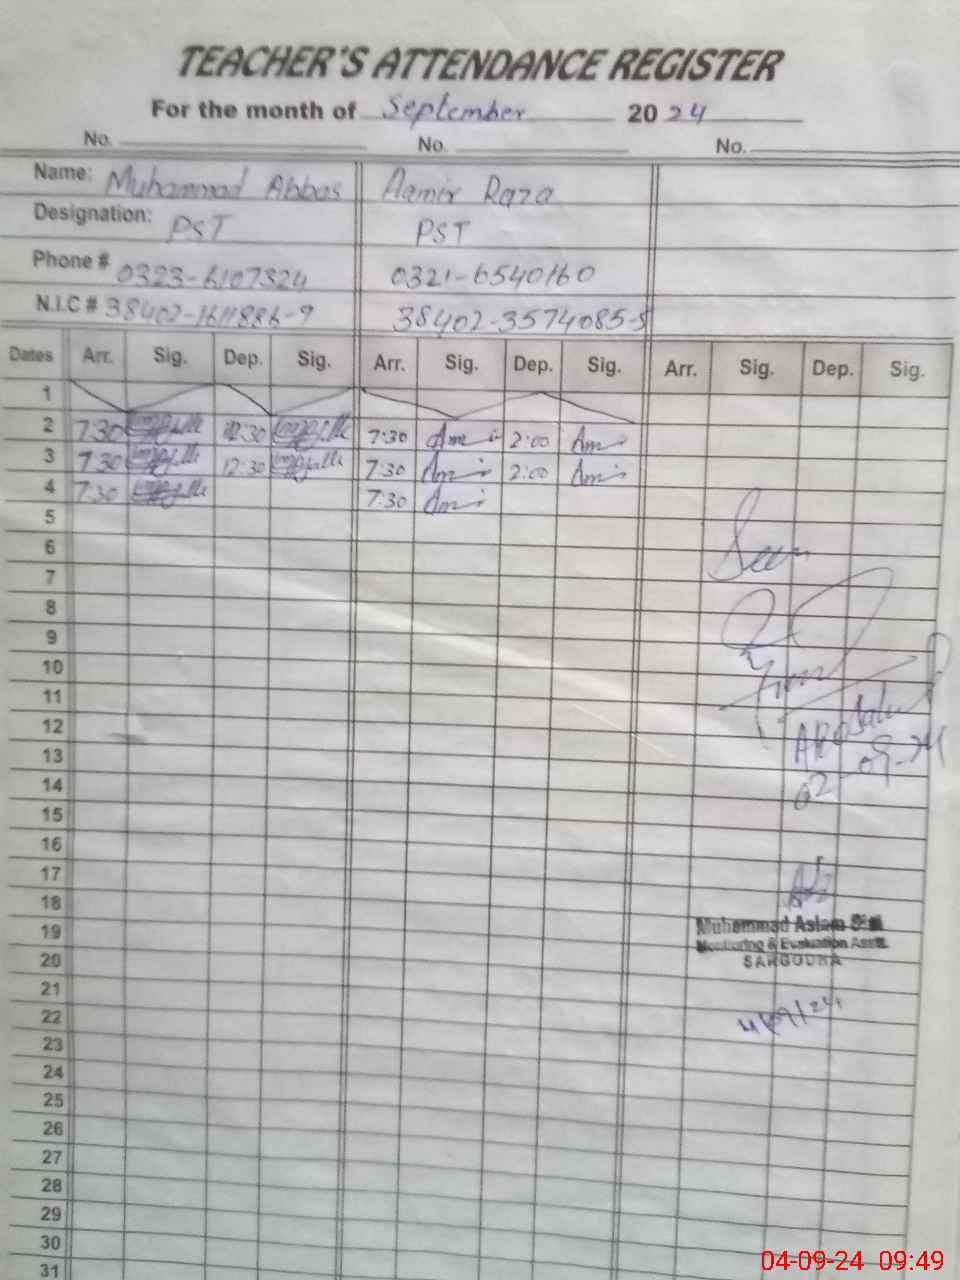 TEACHER'S ATTENDANCE REGISTER
For the month of September 2024
No. No. No.
Name: Muhammad Abbas Aamir Raza
Designation: PST PST
Phone # 0323-6107324 0321-6540160
N.I.C # 38402-1611886-9 38402-3574085-5
Dates Arr. Sig. Dep. Sig. Arr. Sig. Dep. Sig. Arr. Sig. Dep. Sig.
1
2 7:30 12:30 7:30 2:00
3 7:30 12:30 7:30 2:00
4 7:30 7:30
5
6 Seen
7
8
9
10
11
12
13
14 02-09-24
15
16
17
18
19 Muhammad Aslam
Monitoring & Evaluation Asstt.
20 SARGODHA
21
22 4/09/24
23
24
25
26
27
28
29
30
31
04-09-24 09:49